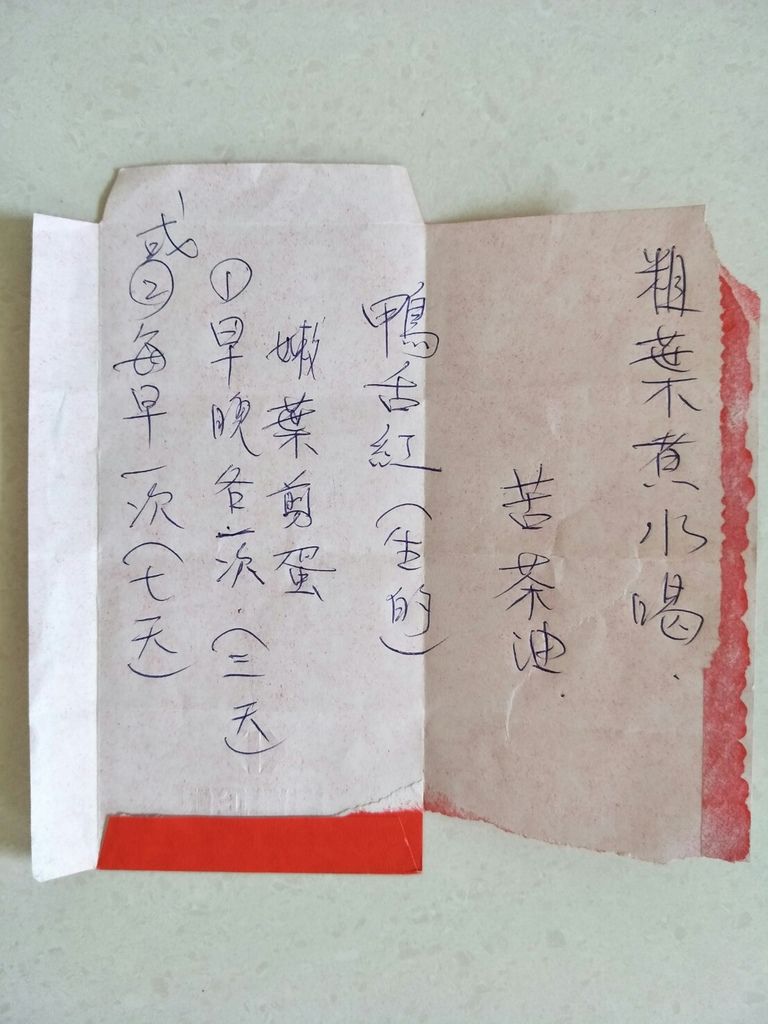 粗葉煮水喝.
苦茶油.
鴨舌紅(生的)
嫩葉剪蛋
①早晚各一次(三天)
或②每早一次(七天)